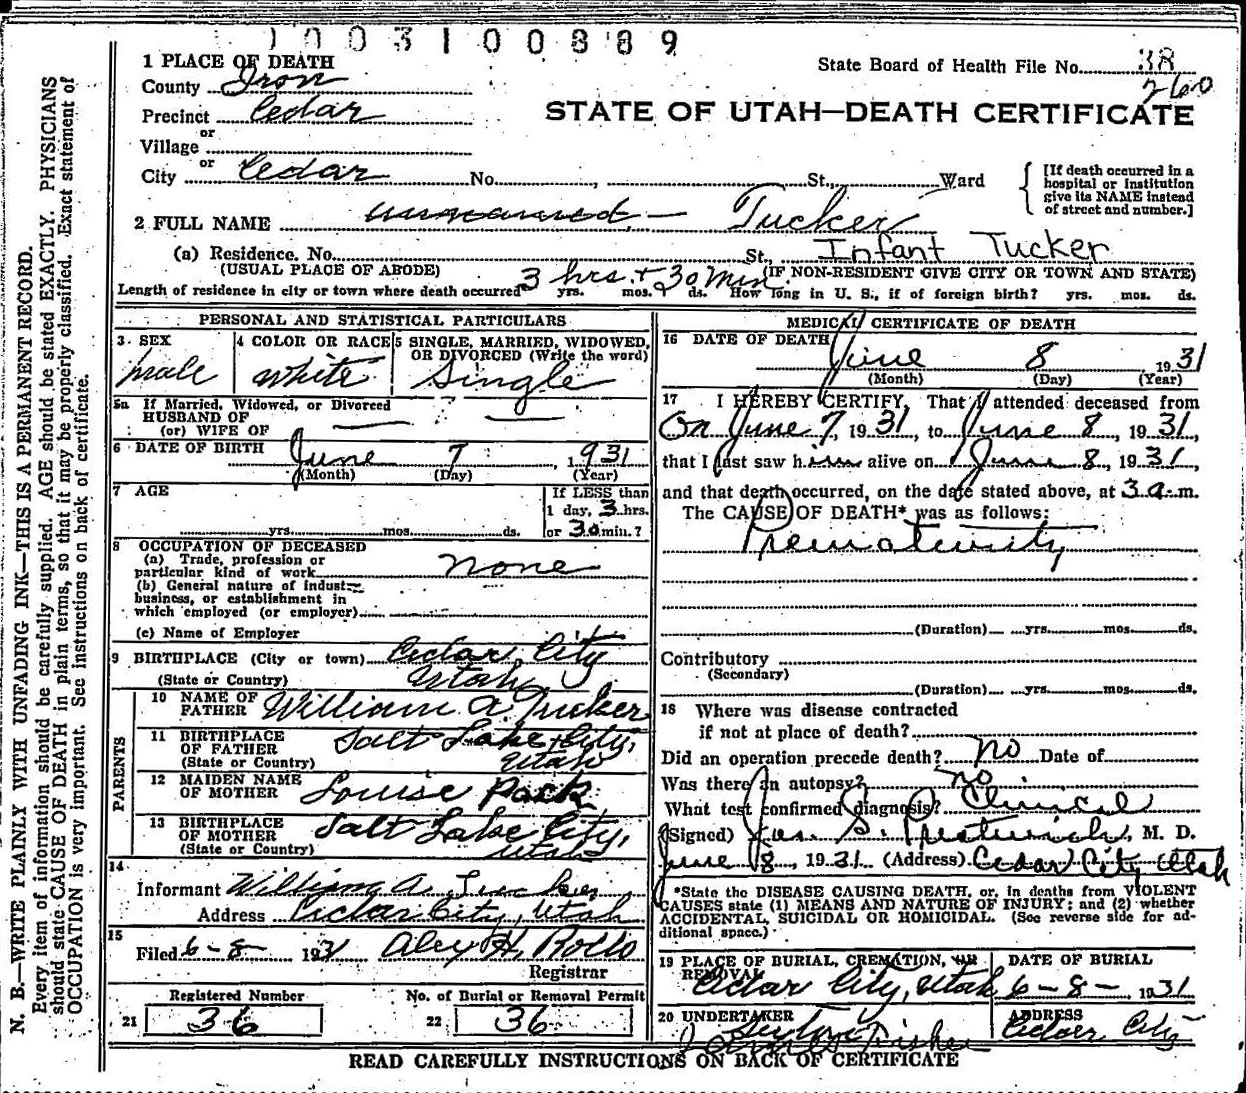 1003100889
1 PLACE OF DEATH
State Board of Health File No. 38
260
County Iron
STATE OF UTAH—DEATH CERTIFICATE
Precinct Cedar
or
Village
or
City Cedar No. , St., Ward
[If death occurred in a
hospital or institution
give its NAME instead
of street and number.]
2 FULL NAME unnamed - Tucker
(a) Residence. No. St., Infant Tucker
(USUAL PLACE OF ABODE) (IF NON-RESIDENT GIVE CITY OR TOWN AND STATE)
Length of residence in city or town where death occurred 3 hrs. + 30 Min. yrs. mos. ds. How long in U. S., if of foreign birth? yrs. mos. ds.
PERSONAL AND STATISTICAL PARTICULARS
3 SEX 4 COLOR OR RACE 5 SINGLE, MARRIED, WIDOWED,
OR DIVORCED (Write the word)
male white Single
5a If Married, Widowed, or Divorced
HUSBAND OF
(or) WIFE OF
6 DATE OF BIRTH June 7, 1931
(Month) (Day) (Year)
7 AGE If LESS than
1 day, 3 hrs.
yrs. mos. ds. or 30 min.?
8 OCCUPATION OF DECEASED
(a) Trade, profession or
particular kind of work none
(b) General nature of industry
business, or establishment in
which employed (or employer)
(c) Name of Employer
9 BIRTHPLACE (City or town) Cedar City
(State or Country) Utah
PARENTS
10 NAME OF
FATHER William A Tucker
11 BIRTHPLACE
OF FATHER Salt Lake City,
(State or Country) Utah
12 MAIDEN NAME
OF MOTHER Louise Pack
13 BIRTHPLACE
OF MOTHER Salt Lake City,
(State or Country) Utah
14
Informant William A Tucker
Address Cedar City, Utah
15
Filed 6-8- 1931 Alex H. Rollo
Registrar
Registered Number No. of Burial or Removal Permit
21 36 22 36
MEDICAL CERTIFICATE OF DEATH
16 DATE OF DEATH
June 8 1931
(Month) (Day) (Year)
17 I HEREBY CERTIFY, That I attended deceased from
On June 7, 1931, to June 8, 1931,
that I last saw him alive on June 8, 1931,
and that death occurred, on the date stated above, at 3 a.m.
The CAUSE OF DEATH* was as follows:
Prematurity
(Duration) yrs. mos. ds.
Contributory
(Secondary)
(Duration) yrs. mos. ds.
18 Where was disease contracted
if not at place of death?
Did an operation precede death? no Date of
Was there an autopsy? no
What test confirmed diagnosis? Clinical
(Signed) Jas. S. M. D.
June 8, 1931 (Address) Cedar City Utah
*State the DISEASE CAUSING DEATH, or, in deaths from VIOLENT
CAUSES state (1) MEANS AND NATURE OF INJURY; and (2) whether
ACCIDENTAL, SUICIDAL OR HOMICIDAL. (See reverse side for ad-
ditional space.)
19 PLACE OF BURIAL, CREMATION, OR
REMOVAL
Cedar City, Utah
DATE OF BURIAL
6-8- 1931
20 UNDERTAKER
Sexton
Fisher
ADDRESS
Cedar City
READ CAREFULLY INSTRUCTIONS ON BACK OF CERTIFICATE
N. B.—WRITE PLAINLY WITH UNFADING INK—THIS IS A PERMANENT RECORD.
Every item of information should be carefully supplied. AGE should be stated EXACTLY. PHYSICIANS
should state CAUSE OF DEATH in plain terms, so that it may be properly classified. Exact statement of
OCCUPATION is very important. See instructions on back of certificate.